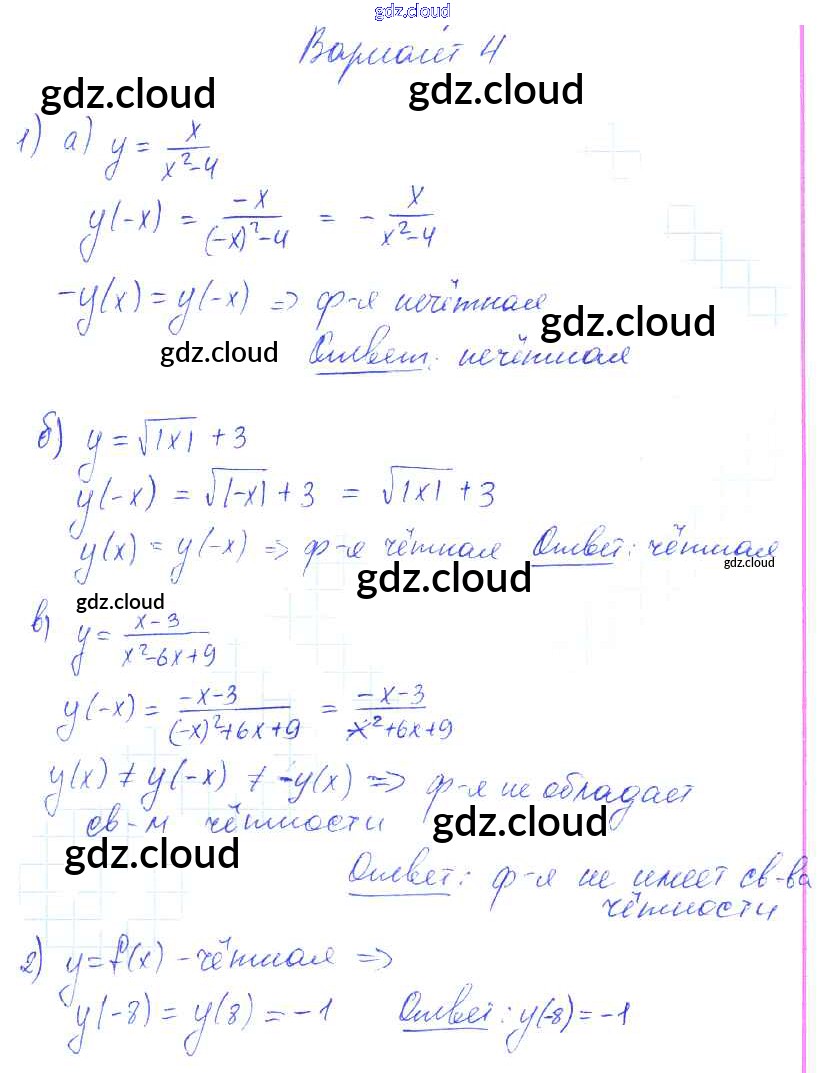 gdz.cloud
Вариант 4
gdz.cloud gdz.cloud
1) а) y = x/(x²-4)
y(-x) = -x/((-x)²-4) = - x/(x²-4)
-y(x) = y(-x) => ф-я нечётная
gdz.cloud
gdz.cloud Ответ: нечётная
б) y = √|x| + 3
y(-x) = √|-x| + 3 = √|x| + 3
y(x) = y(-x) => ф-я чётная Ответ: чётная
gdz.cloud gdz.cloud
gdz.cloud
в) y = (x-3)/(x²-6x+9)
y(-x) = (-x-3)/((-x)²+6x+9) = (-x-3)/(x²+6x+9)
y(x) ≠ y(-x) ≠ -y(x) => ф-я не обладает
св-м чётности gdz.cloud
gdz.cloud
Ответ: ф-я не имеет св-ва
чётности
2) y=f(x) - чётная =>
y(-8) = y(8) = -1 Ответ: y(-8) = -1